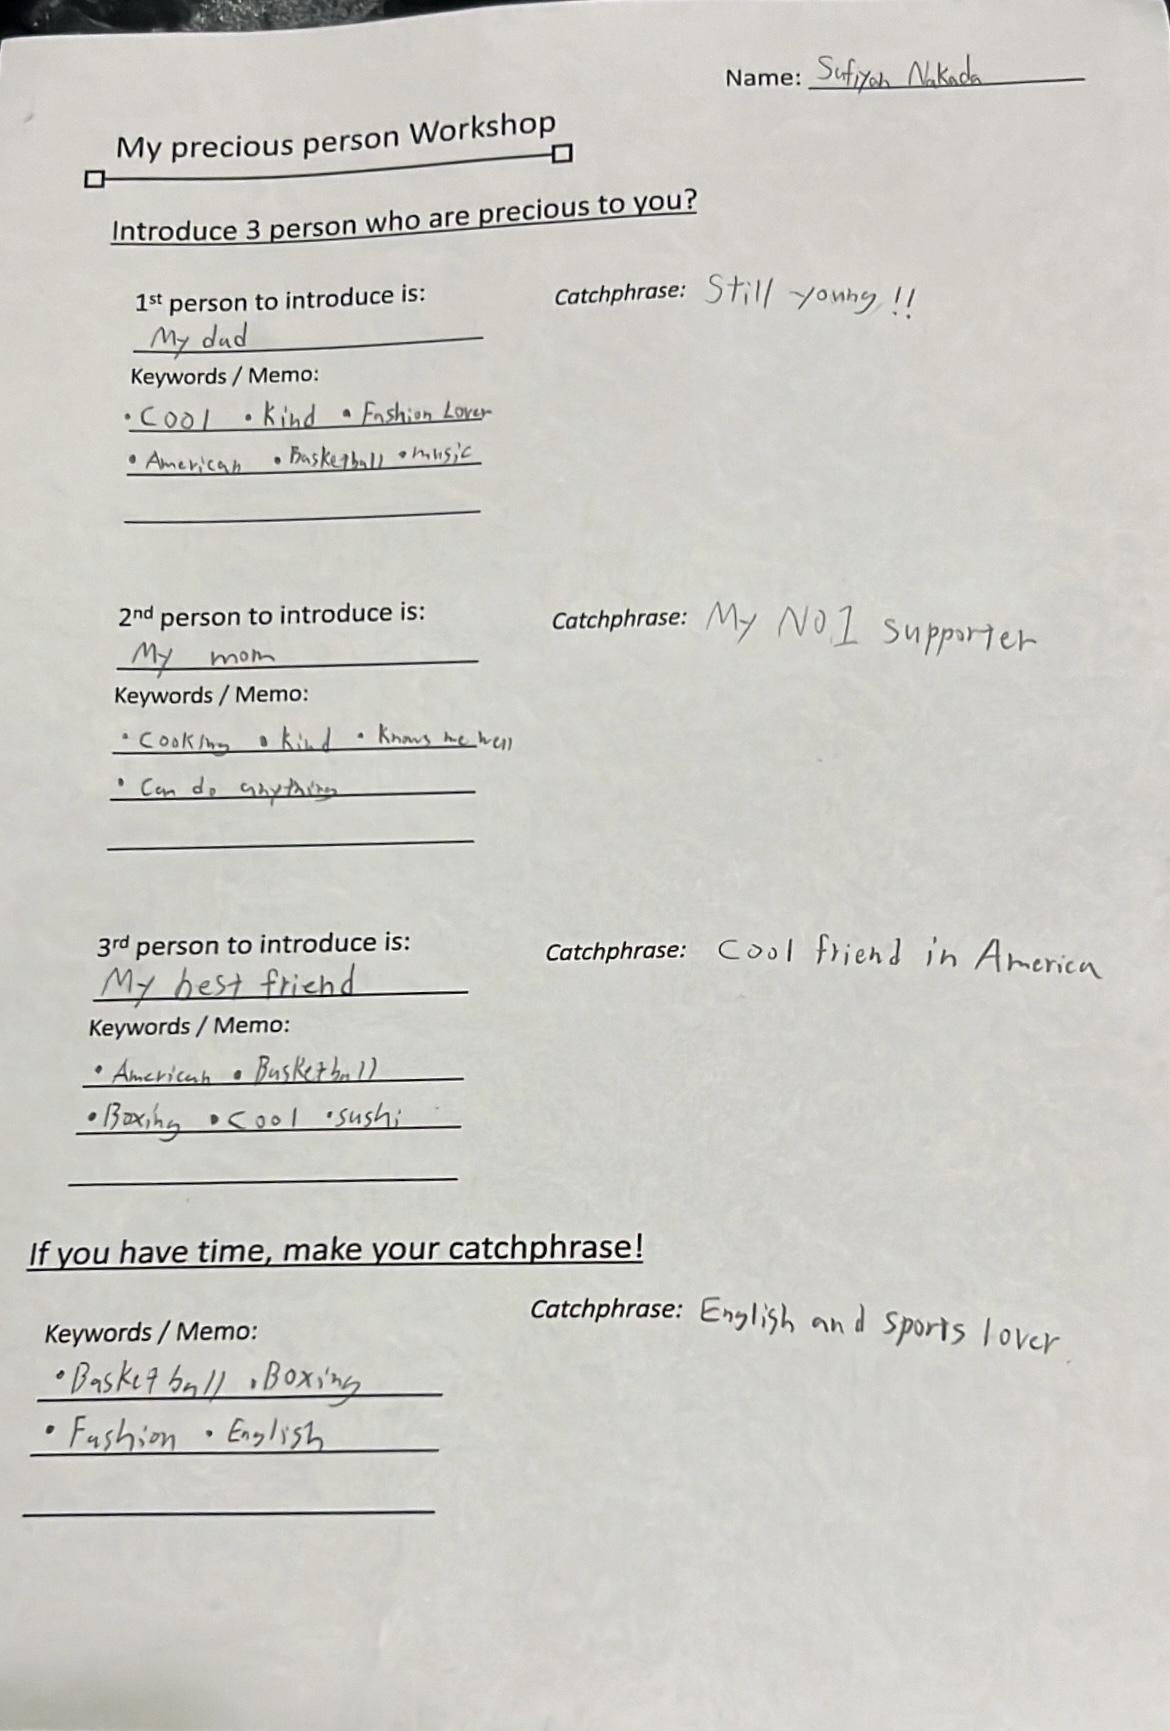 Name: Sufiyah Nakada
My precious person Workshop
Introduce 3 person who are precious to you?
1st person to introduce is:
My dad
Catchphrase: Still young!!
Keywords / Memo:
• Cool • Kind • Fashion Lover
• American • Basketball • music
2nd person to introduce is:
My mom
Catchphrase: My NO.1 supporter
Keywords / Memo:
• Cooking • kind • knows me well
• Can do anything
3rd person to introduce is:
My best friend
Catchphrase: Cool friend in America
Keywords / Memo:
• American • Basketball
• Boxing • Cool • sushi
If you have time, make your catchphrase!
Keywords / Memo:
Catchphrase: English and sports lover.
• Basketball • Boxing
• Fashion • English